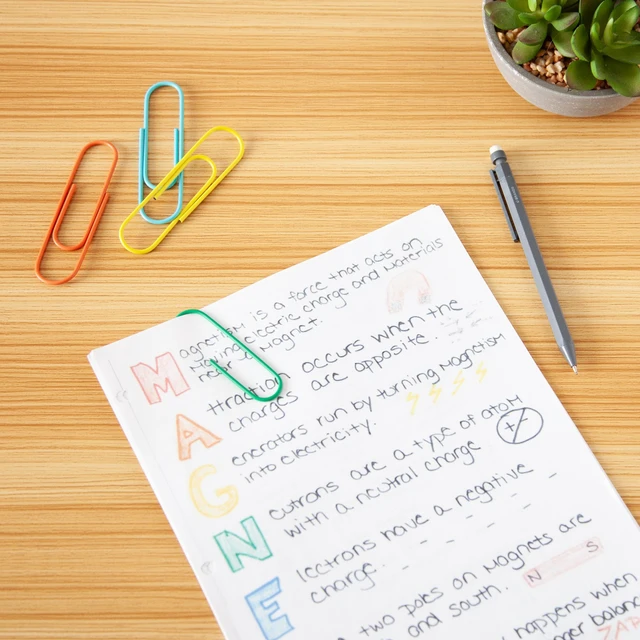 Magnetism is a force that acts on
Moving electric charge and Materials
near a Magnet.
Attraction occurs when the
charges are opposite.
Generators run by turning Magnetism
into electricity.
Neutrons are a type of atom
with a neutral charge
Electrons have a negative
charge.
two poles on Magnets are
and south.
N S
happens when